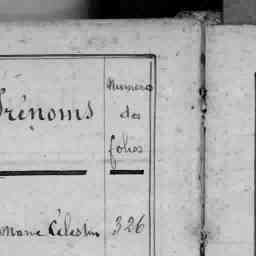 Prénoms
Numéros
des
folios
Marie Célestin 326